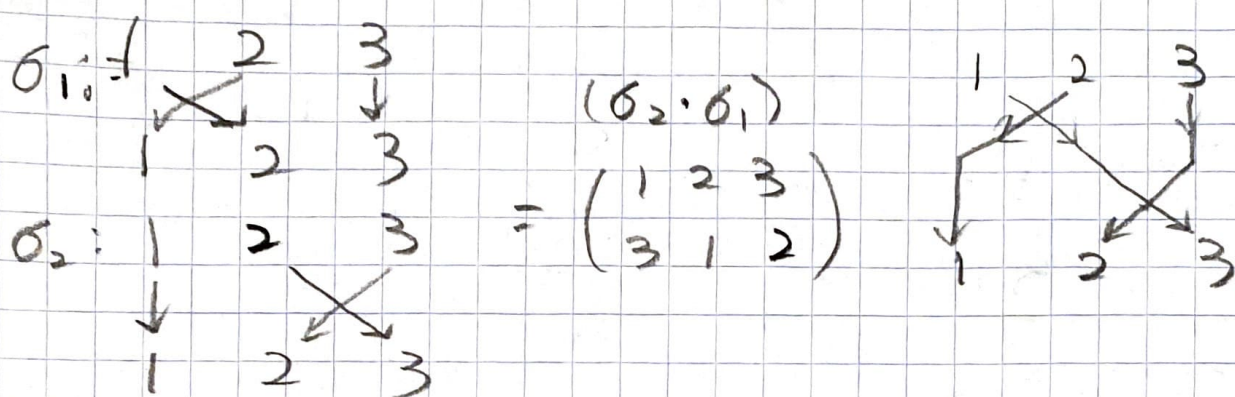 σ₁: 1 2 3
1 2 3
σ₂: 1 2 3
1 2 3
(σ₂・σ₁)
= ( 1 2 3
3 1 2 )
1 2 3
1 2 3